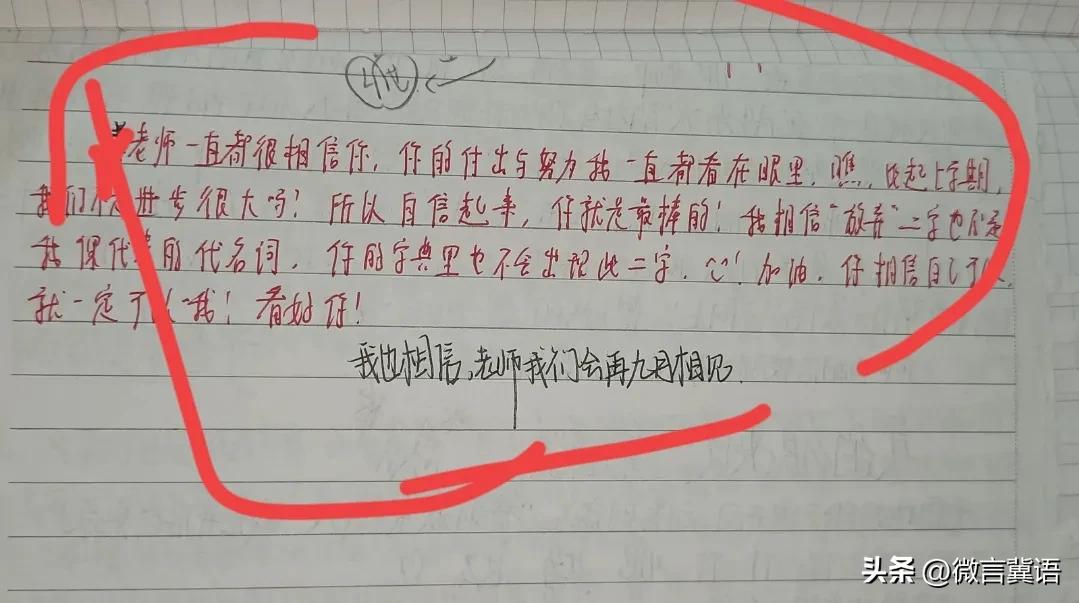 老师一直都很相信你，你的付出与努力我一直都看在眼里，瞧，比起上学期，
我们不是进步很大吗！所以自信起来，你就是最棒的！我相信“放弃”二字也不是
我课代表的代名词，你的字典里也不会出现此二字，加油，你相信自己可以，
就一定可以哦！看好你！
我也相信，老师我们会再九月相见.
头条 @微言冀语